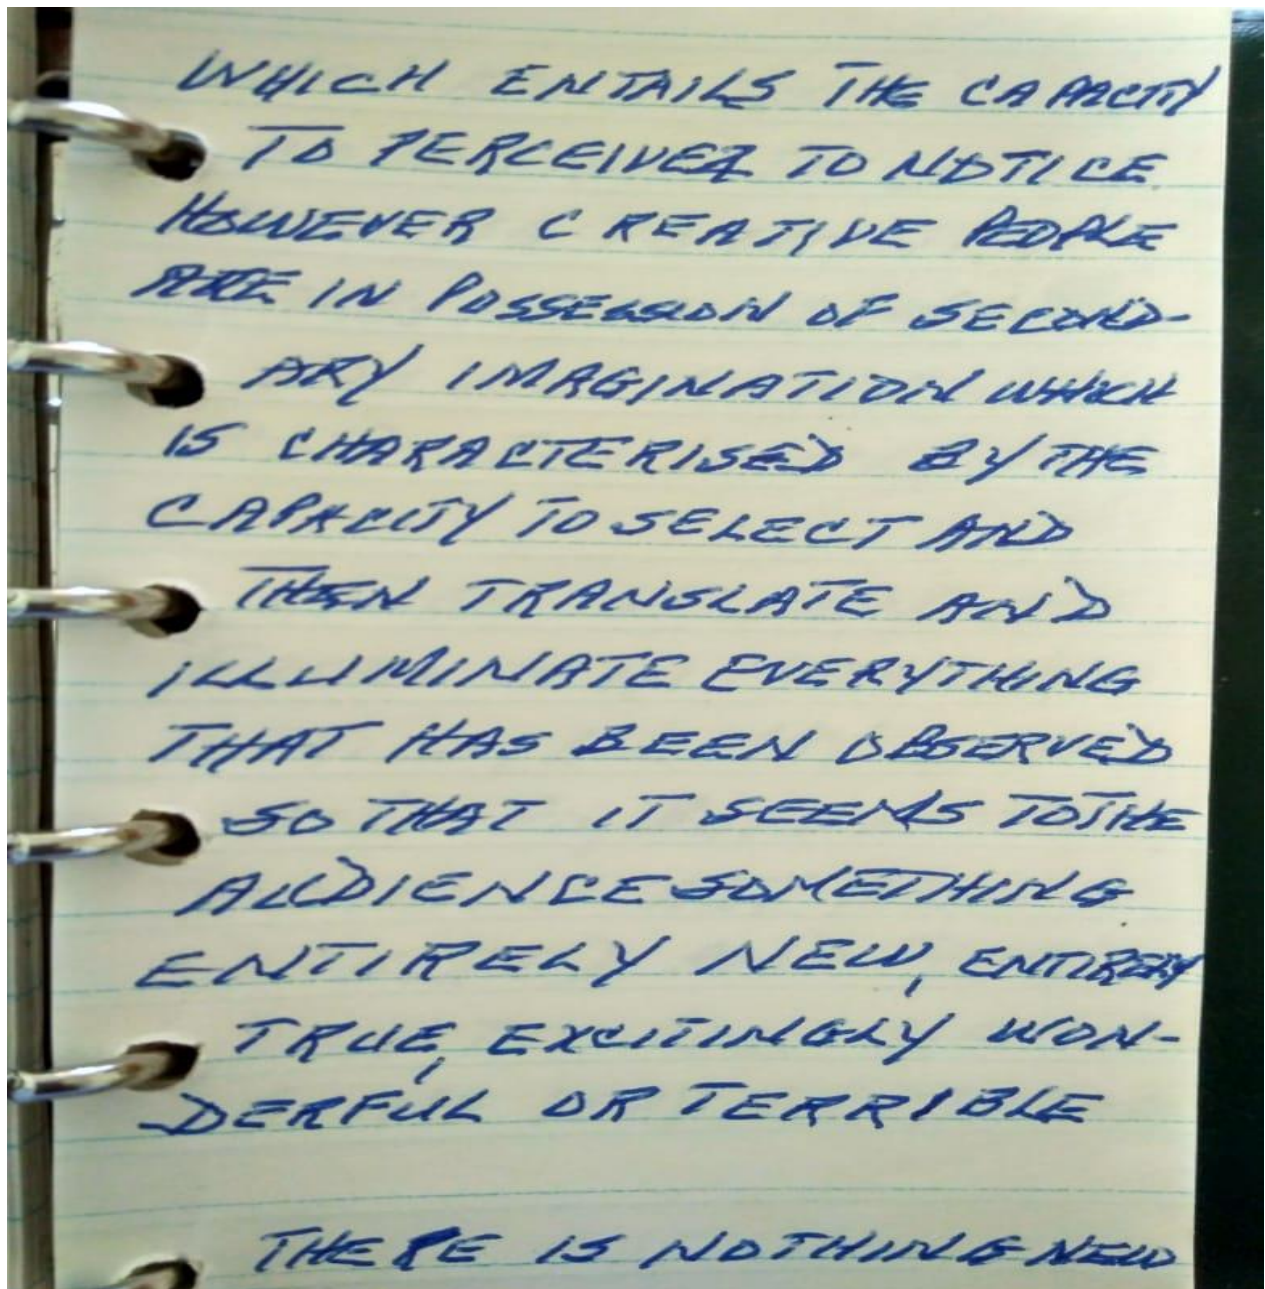 WHICH ENTAILS THE CAPACITY
TO PERCEIVE TO NOTICE
HOWEVER CREATIVE PEOPLE
ARE IN POSSESSION OF SECOND-
ARY IMAGINATION WHICH
IS CHARACTERISED BY THE
CAPACITY TO SELECT AND
THEN TRANSLATE AND
ILLUMINATE EVERYTHING
THAT HAS BEEN OBSERVED
SO THAT IT SEEMS TO THE
AUDIENCE SOMETHING
ENTIRELY NEW, ENTIRELY
TRUE, EXCITINGLY WON-
DERFUL OR TERRIBLE
THERE IS NOTHING NEW